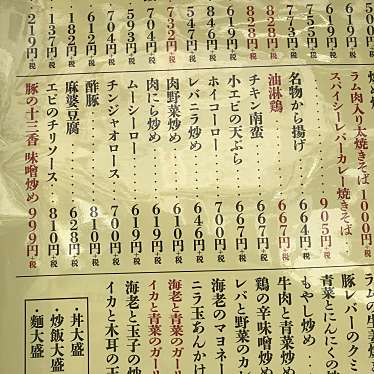 500
619円+税
755円+税
773円+税
828円+税
828円+税
619円+税
646円+税
864円+税
732円+税
764円+税
593円+税
704円+税
612円+税
182円+税
137円+税
219円+税
ラム肉入り太焼きそば 1000円+税
スパイシーレバーカレー焼きそば 905円+税
名物から揚げ 664円+税
油淋鶏 667円+税
チキン南蛮 664円+税
小エビの天ぷら 667円+税
ホイコーロー 646円+税
レバニラ炒め 646円+税
肉野菜炒め 610円+税
肉にら炒め 619円+税
ムーシーロー 619円+税
チンジャオロース 700円+税
酢豚 810円+税
麻婆豆腐 628円+税
エビのチリソース 810円+税
豚の十三香 味噌炒め 999円+税
ラムの生姜焼
豚レバーのクミ
青菜とにんにくの
もやし炒め
牛肉と青菜炒め
鶏の辛味噌炒め
レバと野菜のカ
海老のマヨネー
ニラ玉あんかけ
海老と青菜のガー
イカと青菜のガー
海老と玉子の炒
イカと木耳の玉
・丼大盛
・炒飯大盛
・麺大盛